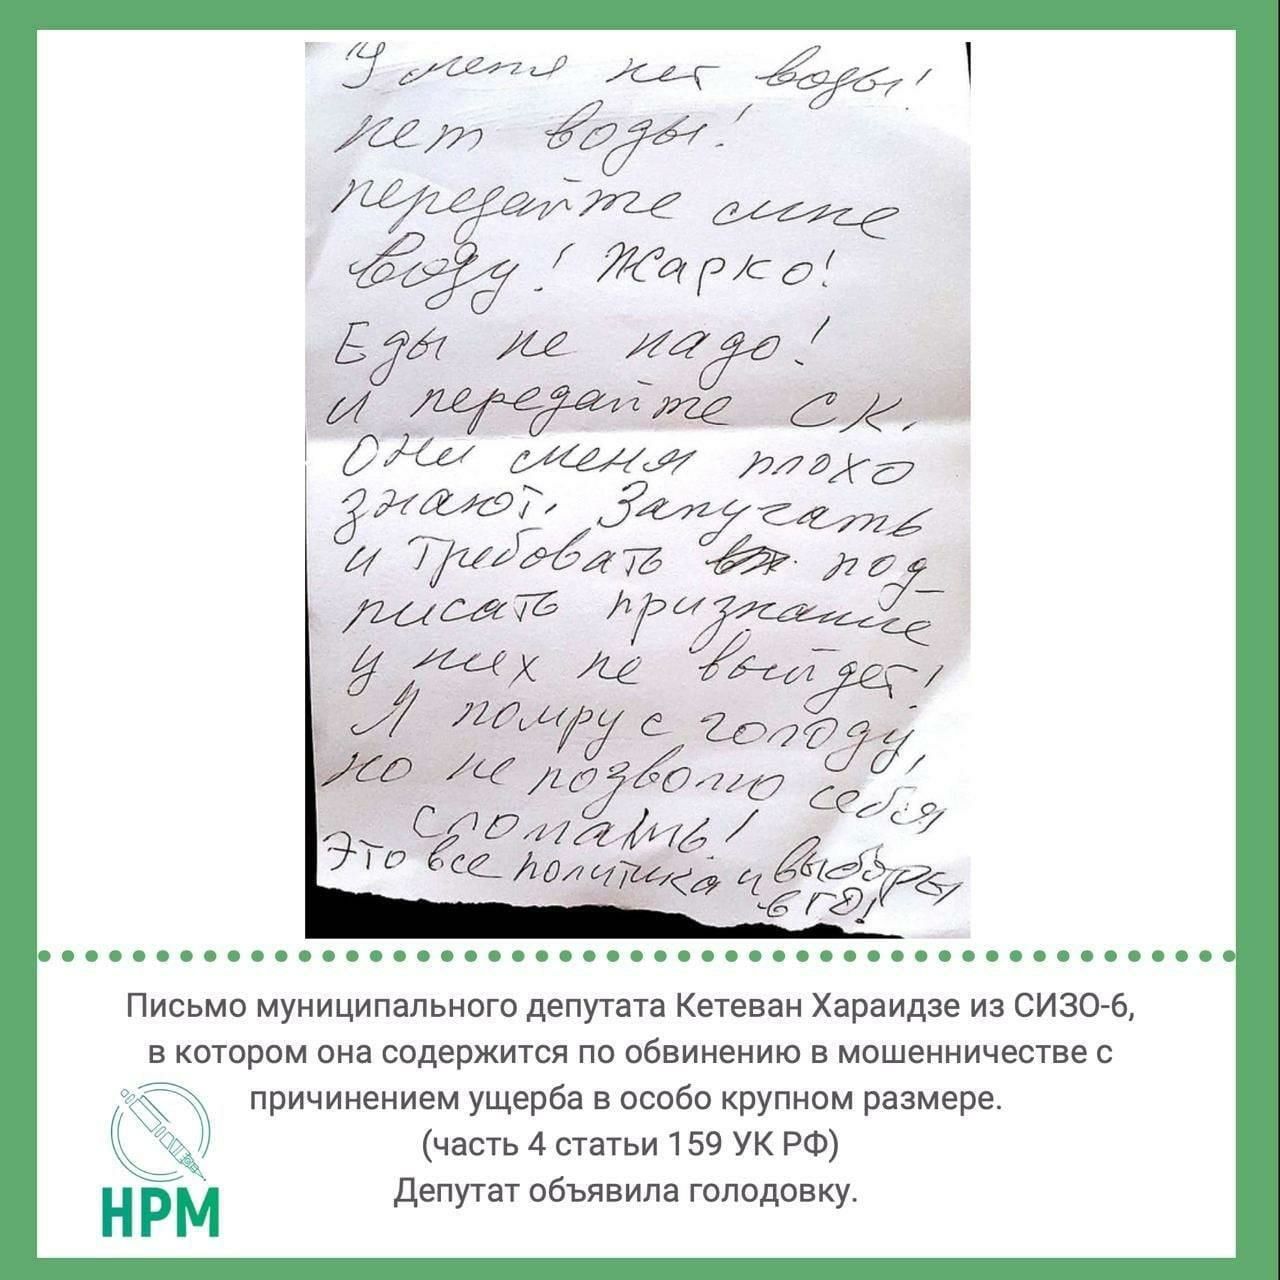 У меня нет воды!
нет воды!
передайте мне
воду! Жарко!
Еды не надо!
и передайте СК.
Они меня плохо
знают. Запугать
и требовать под_
писать признание
у них не выйдет!
Я помру с голоду,
но не позволю себя
сломать!
Это все политика и выборы
в ГД!
Письмо муниципального депутата Кетеван Хараидзе из СИЗО-6,
в котором она содержится по обвинению в мошенничестве с
причинением ущерба в особо крупном размере.
(часть 4 статьи 159 УК РФ)
Депутат объявила голодовку.
НРМ